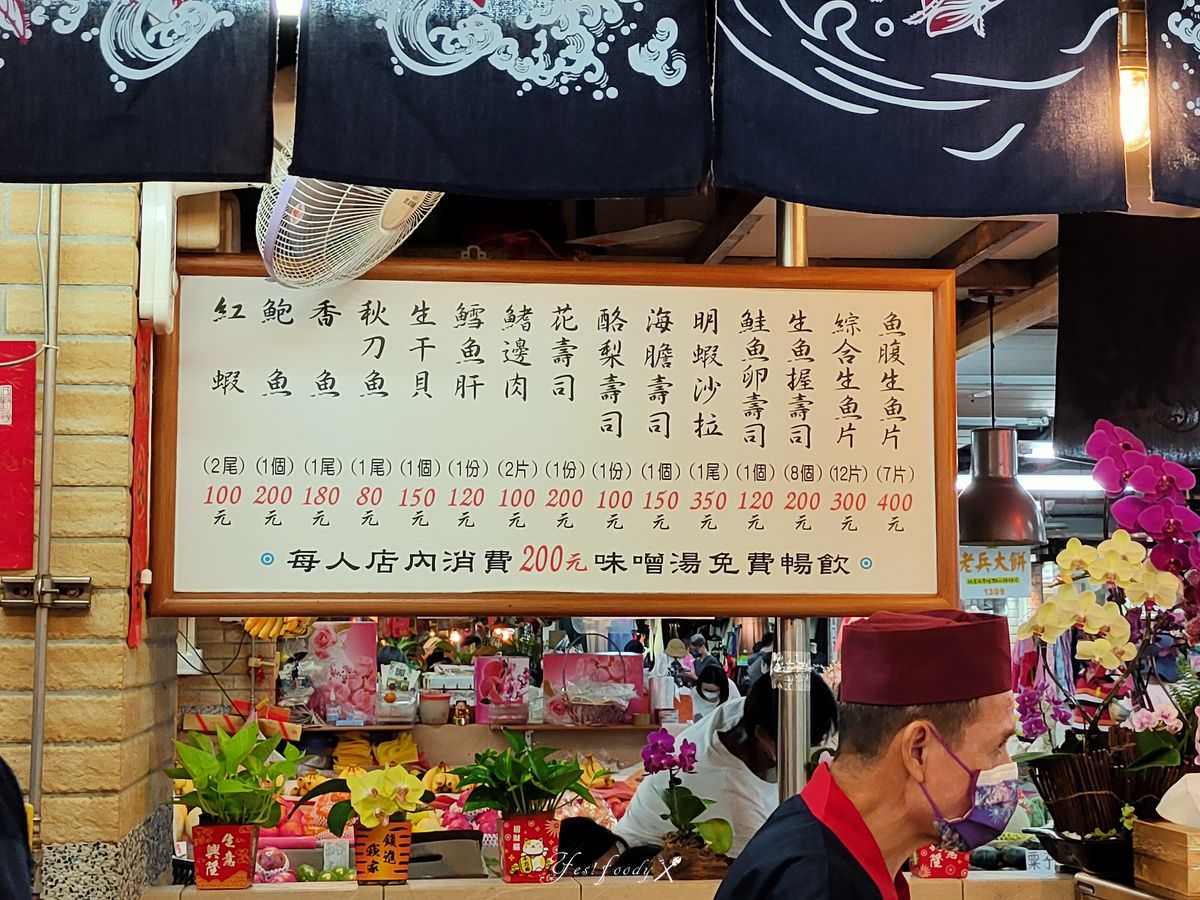 魚腹生魚片 (7片) 400元
綜合生魚片 (12片) 300元
生魚握壽司 (8個) 200元
鮭魚卵壽司 (1個) 120元
明蝦沙拉 (1尾) 350元
海膽壽司 (1個) 150元
酪梨壽司 (1份) 100元
花壽司 (1份) 200元
鰭邊肉 (2片) 100元
鱈魚肝 (1份) 120元
生干貝 (1個) 150元
秋刀魚 (1尾) 80元
香魚 (1尾) 180元
鮑魚 (1個) 200元
紅蝦 (2尾) 100元
每人店內消費200元味噌湯免費暢飲
老兵大餅
1309
生意
興隆
錢進
我家
Yes!foodyX